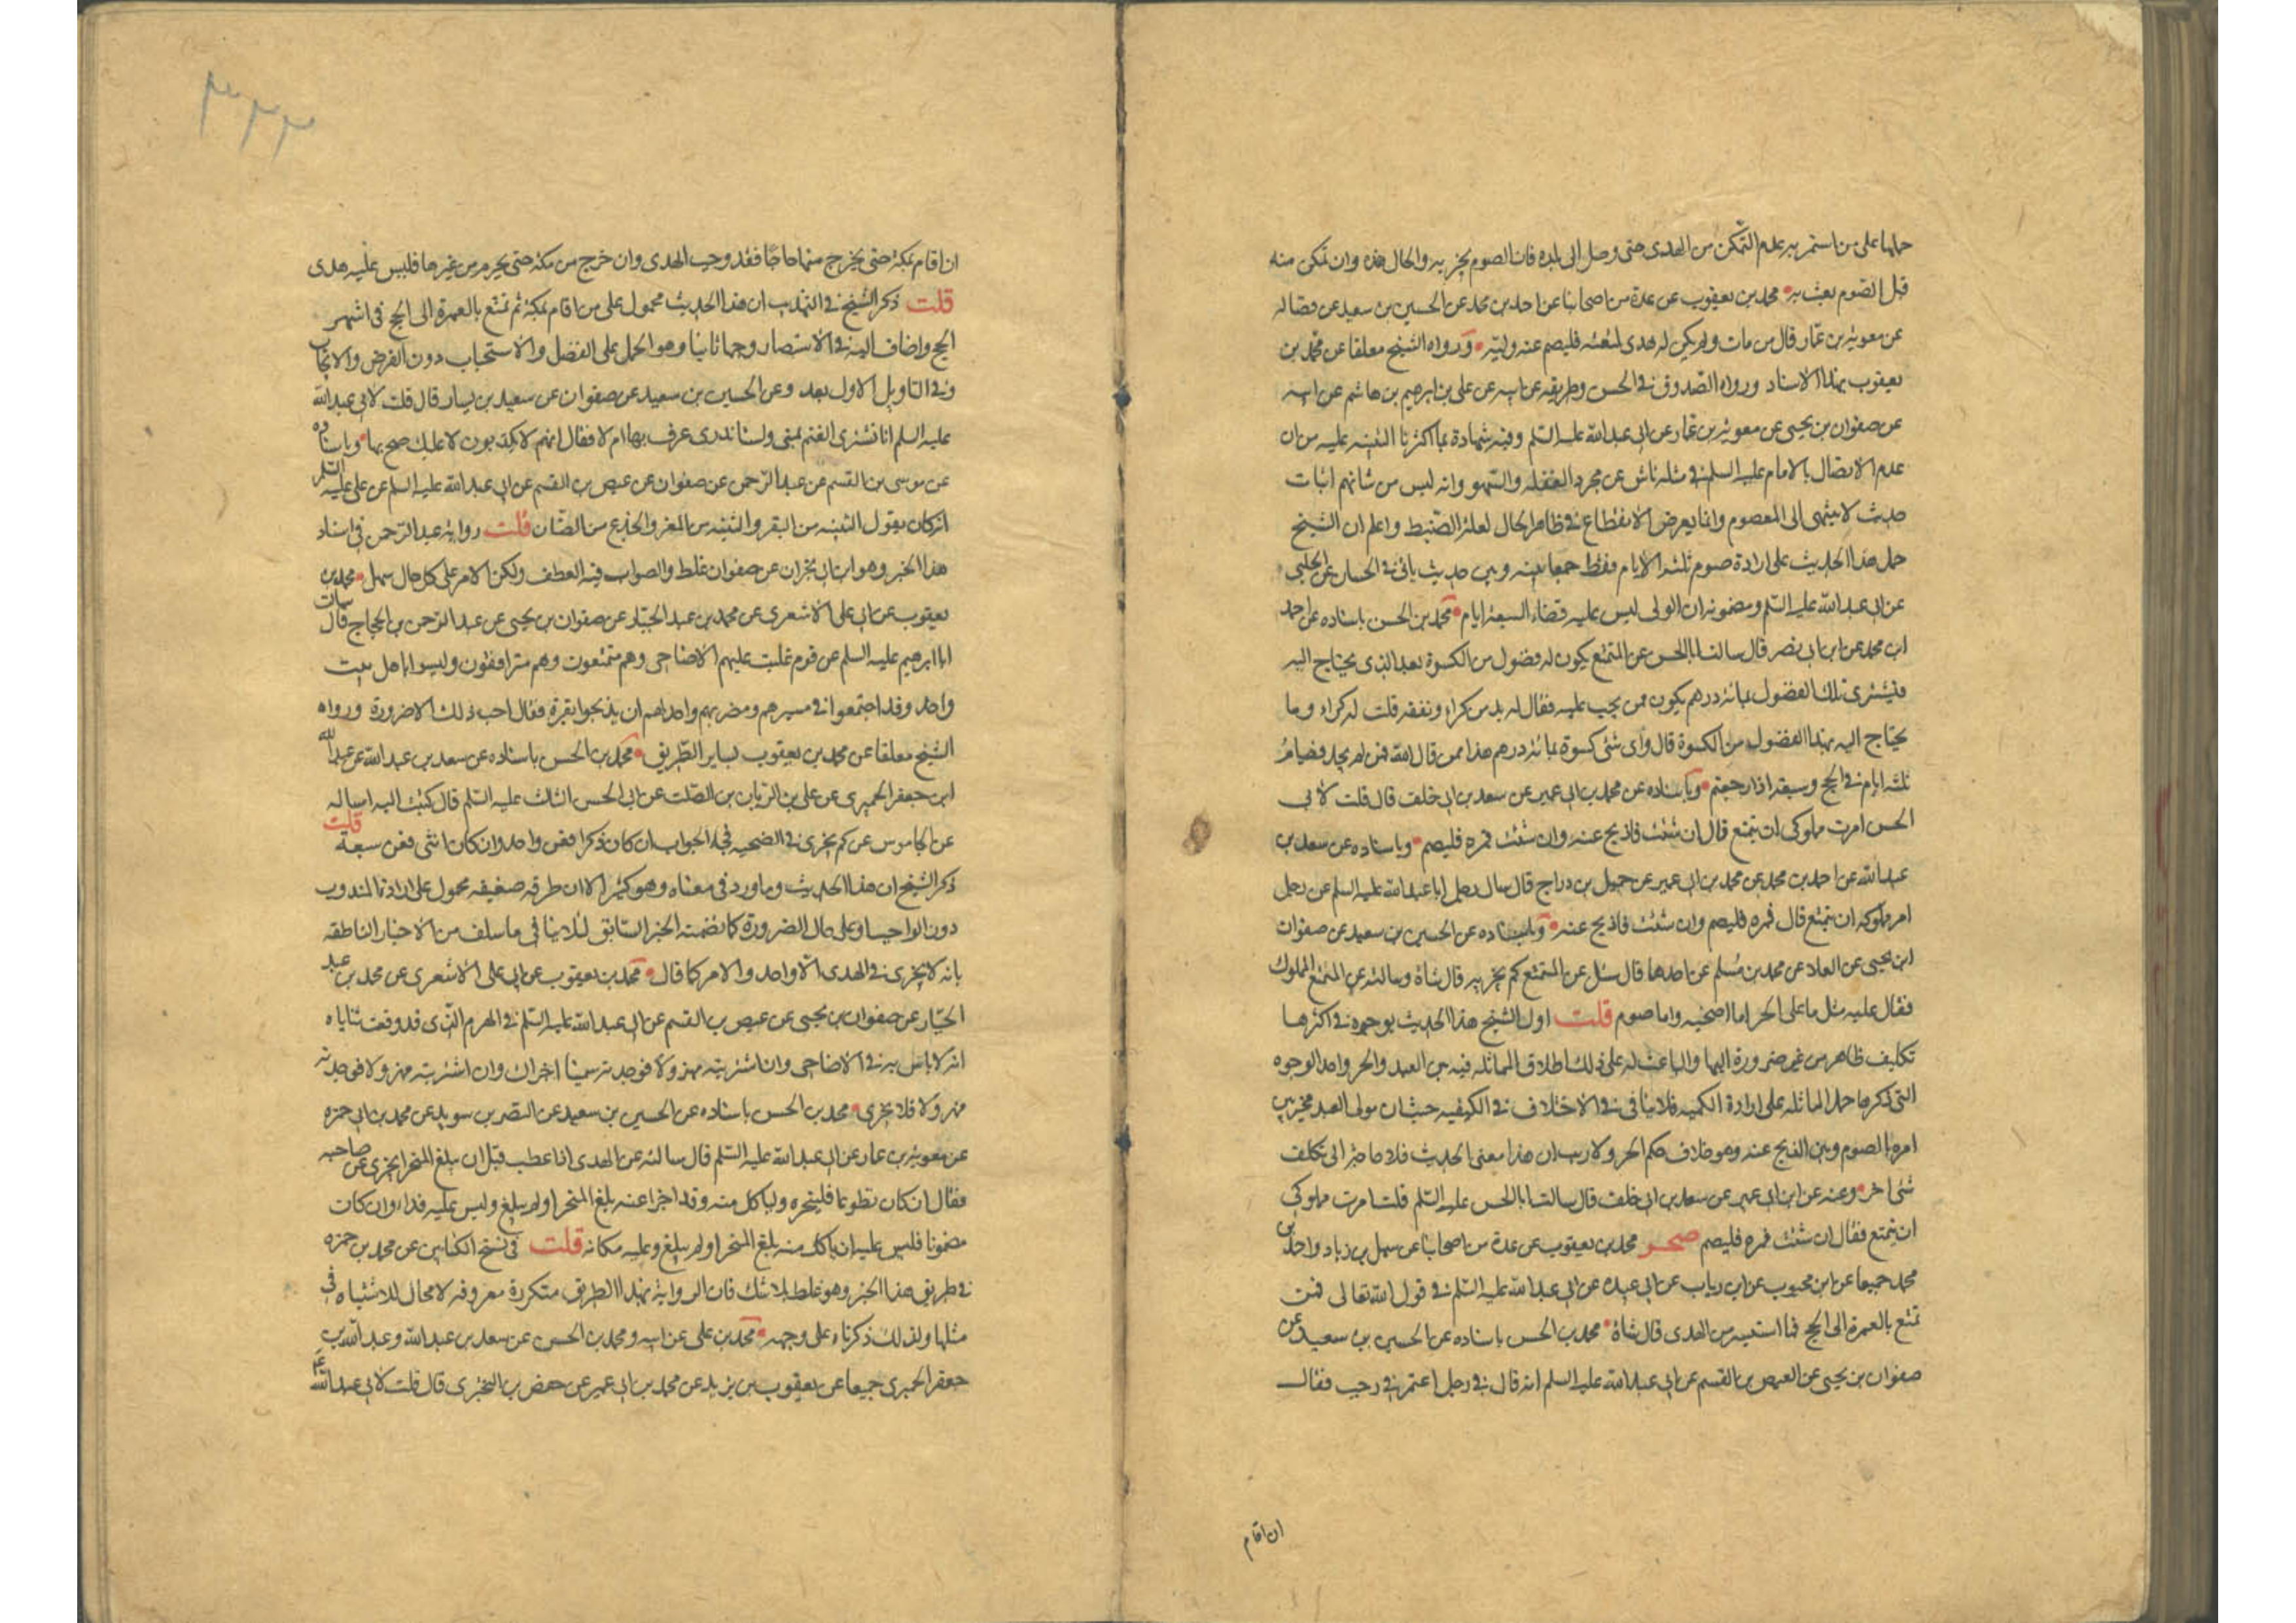 حملها على من استمر به عدم التمكن من الهدى حتى وصل الى بلده فان الصوم يجزيه والحال هذه وان تمكن منه
قبل الصوم بعث به محمد بن يعقوب عن عدة من اصحابنا عن احمد بن محمد عن الحسين بن سعيد عن فضاله
عن معوية بن عمار قال من مات ولم يكن له هدى لمتعته فليصم عنه وليه ورواه الشيخ معلقا عن محمد بن
يعقوب بهذا الاسناد ورواه الصدوق فى الحسن وطريقه عن ابيه عن على بن ابرهيم بن هاشم عن ابيه
عن صفوان بن يحيى عن معوية بن عمار عن ابى عبد الله عليه السلم وفيه شهادة بما اكثرنا التنبيه عليه من ان
عدم الاتصال بالامام عليه السلم فى مثله ناش عن مجرد الغفله والسهو وانه ليس من شانهم اثبات
حديث لا ينتهى الى المعصوم وانما يعرض الانقطاع فى ظاهر الحال لعلة الضبط واعلم ان الشيخ
حمل هذا الحديث على ارادة صوم ثلثة الايام فقط جمعا بينه وبين حديث ياتى فى الحسان عن الحلبى
عن ابى عبد الله عليه السلم ومضمونه ان الولى ليس عليه قضاء السبعة ايام محمد بن الحسن باسناده عن احمد
ابن محمد عن ابن ابى نصر قال سالت ابا الحسن عن المتمتع يكون له فضول من الكسوة بعد الذى يحتاج اليه
فتسوى تلك الفضول بمائة درهم يكون ممن يجب عليه فقال له بد من كراء ونفقه قلت له كراء وما
يحتاج اليه بهذا الفضول من الكسوة قال واى شئ كسوة بمائة درهم هذا ممن قال الله فمن لم يجد فصيام
ثلثة ايام فى الحج وسبعة اذا رجعتم وباسناده عن محمد بن ابى عمير عن سعد بن ابى خلف قال قلت لابى
الحسن امرت مملوكى ان يتمتع قال ان شئت فاذبح عنه وان شئت فمره فليصم وباسناده عن سعد بن
عبد الله عن احمد بن محمد عن محمد بن ابى عمير عن جميل بن دراج قال سال رجل ابا عبد الله عليه السلم عن رجل
امر مملوكه ان يتمتع قال فمره فليصم وان شئت فاذبح عنه وباسناده عن الحسين بن سعيد عن صفوان
ابن يحيى عن العلا عن محمد بن مسلم عن احدهما قال سئل عن المتمتع كم يجزيه قال شاة وسالته عن المتمتع المملوك
فقال عليه مثل ما على الحر اما اضحيه واما صوم قلت اول الشيخ هذا الحديث بوجوه فى اكثرها
تكليف ظاهر من غير ضرورة اليها والباعث له على ذلك اطلاق المماثله فيه بين العبد والحر واحد الوجوه
التى ذكرها حمل المماثله على ارادة الكميه فلا ينافى فى الاختلاف فى الكيفيه حيث ان مولى العبد مخير بين
امره بالصوم وبين الذبح عنه وهو خلاف حكم الحر ولا ريب ان هذا معنى الحديث فلا حاجة الى تكلف
شئ اخر وعنه عن ابن ابى عمير عن سعد بن ابى خلف قال سالت ابا الحسن عليه السلم قلت امرت مملوكى
ان يتمتع فقال ان شئت فمره فليصم صحر محمد بن يعقوب عن عدة من اصحابنا عن سهل بن زياد واحمد بن
محمد جميعا عن ابن محبوب عن ابن رياب عن ابى عبيده عن ابى عبد الله عليه السلم فى قول الله تعالى فمن
تمتع بالعمرة الى الحج فما استيسر من الهدى قال شاة محمد بن الحسن باسناده عن الحسين بن سعيد عن
صفوان بن يحيى عن العيص بن القسم عن ابى عبد الله عليه السلم انه قال فى رجل اعتمر فى رجب فقال
ان اقام
٣٣٣
ان اقام بمكة حتى يخرج منها حاجا فقد وجب الهدى وان خرج من مكة حتى يحرم من غيرها فليس عليه هدى
قلت ذكر الشيخ فى التهذيب ان هذا الحديث محمول على من اقام بمكة ثم تمتع بالعمرة الى الحج فى اشهر
الحج واضاف اليه فى الاستبصار وجها ثانيا وهو الحمل على الفضل والاستحباب دون الفرض والايجاب
وفى التاويل الاول بعد وعن الحسين بن سعيد عن صفوان عن سعيد بن يسار قال قلت لابى عبد الله
عليه السلم انا نشترى الغنم بمنى ولسنا ندرى عرف بها ام لا فقال انهم لا يكذبون لا عليك ضح بها وباسناده
عن موسى بن القسم عن عبد الرحمن عن صفوان عن عيص بن القسم عن ابى عبد الله عليه السلم عن على عليه السلم
انه كان يقول الثنيه من البقر والثنيه من المعز والجذع من الضان قلت رواية عبد الرحمن فى اسناد
هذا الخبر وهو ابن ابى نجران عن صفوان غلط والصواب فيه العطف ولكن الامر على كل حال سهل محمد بن
يعقوب عن ابى على الاشعرى عن محمد بن عبد الجبار عن صفوان بن يحيى عن عبد الرحمن بن الحجاج قال سالت
ابا ابرهيم عليه السلم عن قوم غلبت عليهم الاضاحى وهم متمتعون وهم مترافقون وليسوا باهل بيت
واحد وقد اجتمعوا فى مسيرهم ومضربهم واحد الهم ان يذبحوا بقرة فقال لا احب ذلك الا ضرورة ورواه
الشيخ معلقا عن محمد بن يعقوب بساير الطريق محمد بن الحسن باسناده عن سعد بن عبد الله عن عبد الله
ابن جعفر الحميرى عن على بن الريان بن الصلت عن ابى الحسن الثالث عليه السلم قال كتبت اليه اساله
عن الجاموس عن كم يجزى فى الضحيه فجاء الجواب ان كان ذكرا فعن واحد وان كان انثى فعن سبعة قلت
ذكر الشيخ ان هذا الحديث وما ورد فى معناه وهو كثير الا ان طرقه ضعيفه محمول على ارادة المندوب
دون الواجب او على حال الضرورة كما تضمنه الخبر السابق لئلا ينافى ما سلف من الاخبار الناطقه
بانه لا يجزى فى الهدى الا واحد والامر كما قال محمد بن يعقوب عن ابى على الاشعرى عن محمد بن عبد
الجبار عن صفوان بن يحيى عن عيص بن القسم عن ابى عبد الله عليه السلم فى الهرم الذى قد وقعت ثناياه
انه لا باس به فى الاضاحى وان اشتريته مهزولا فوجدته سمينا اجزاك وان اشتريته مهزولا فوجدته
مهزولا فلا يجزى محمد بن الحسن باسناده عن الحسين بن سعيد عن النضر بن سويد عن محمد بن ابى حمزه
عن معوية بن عمار عن ابى عبد الله عليه السلم قال سالته عن الهدى اذا عطب قبل ان يبلغ المنحر ايجزى عن صاحبه
فقال ان كان تطوعا فلينحره ولياكل منه وقد اجزا عنه بلغ المنحر او لم يبلغ وليس عليه فداء وان كان
مضمونا فليس عليه ان ياكل منه بلغ المنحر او لم يبلغ وعليه مكانه قلت فى نسخ الكتابين عن محمد بن حمزه
فى طريق هذا الخبر وهو غلط بلا شك فان الرواية بهذا الطريق متكررة معروفه لا مجال للاشتباه فى
مثلها ولذلك ذكرناه على وجهه محمد بن على عن ابيه ومحمد بن الحسن عن سعد بن عبد الله وعبد الله بن
جعفر الحميرى جميعا عن يعقوب بن يزيد عن محمد بن ابى عمير عن حفص بن البخترى قال قلت لابى عبد الله ع